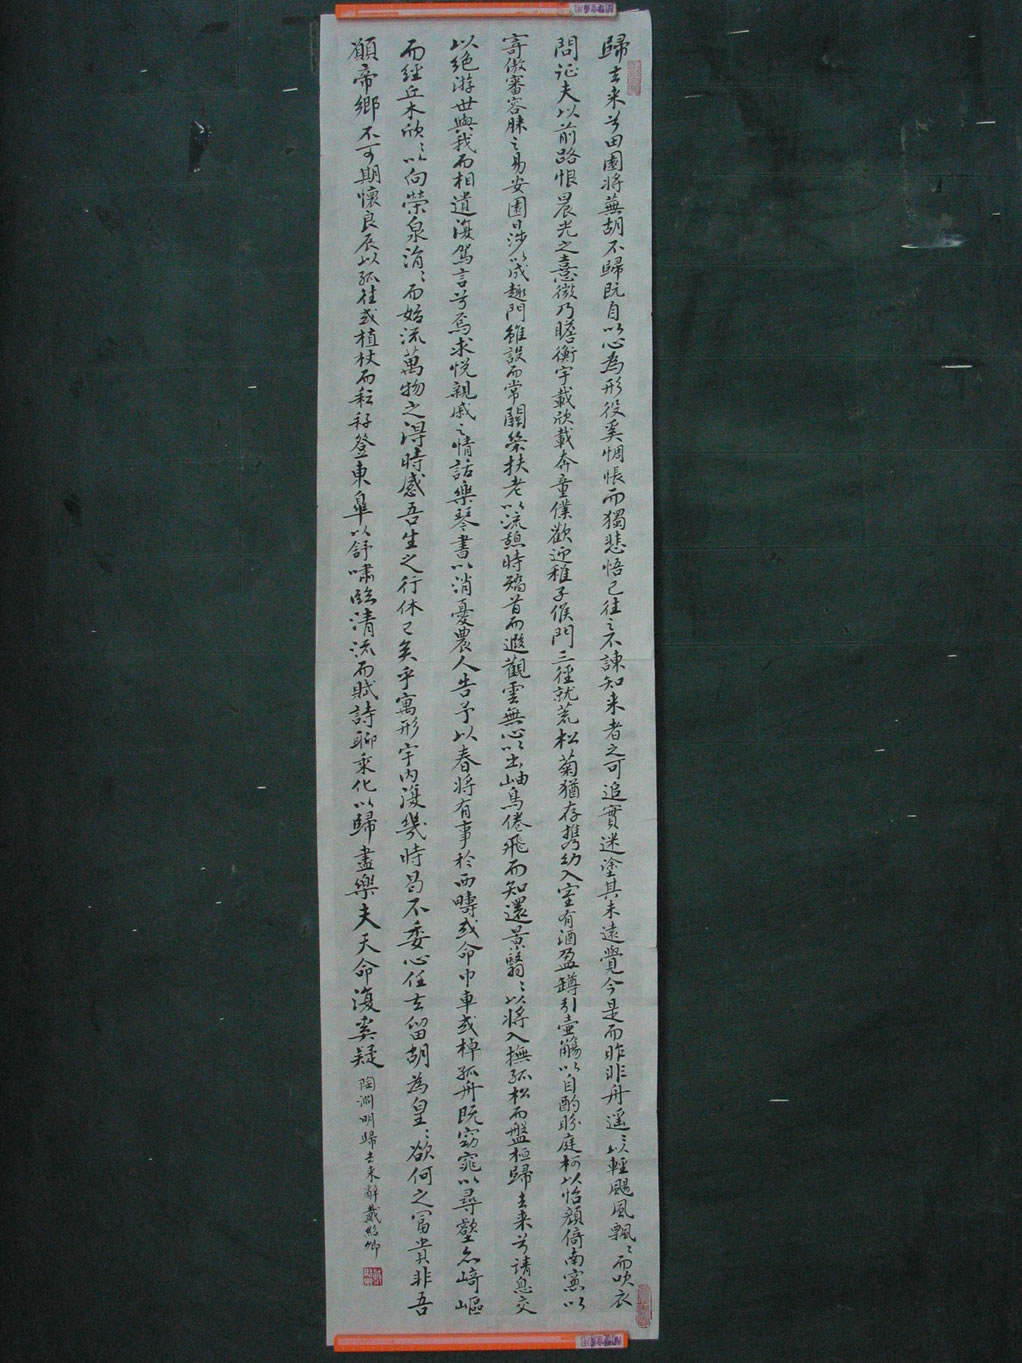 歸去来兮田園将蕪胡不歸既自以心為形役奚惆悵而獨悲悟已往之不諫知来者之可追實迷塗其未遠覺今是而昨非舟遥々以輕颺風飄々而吹衣
問征夫以前路恨晨光之憙微乃瞻衡宇載欣載奔童僕歡迎稚子候門三徑就荒松菊猶存携幼入室有酒盈罇引壺觴以自酌眄庭柯以怡顔倚南窻以
寄傲審容膝之易安園日涉以成趣門雖設而常關策扶老以流憩時矯首而遐觀雲無心以出岫鳥倦飛而知還景翳々以将入撫孤松而盤桓歸去来兮請息交
以絶游世與我而相遺復駕言兮焉求悦親戚之情話樂琴書以消憂農人告予以春将有事於西疇或命巾車或棹孤舟既窈窕以尋壑亦崎嶇
而經丘木欣々以向榮泉涓々而始流萬物之得時感吾生之行休已矣乎寓形宇内復幾時曷不委心任去留胡為皇々欲何之富貴非吾
願帝鄉不可期懷良辰以孤往或植杖而耘耔登東皋以舒嘯臨清流而賦詩聊乗化以歸盡樂夫天命復奚疑
陶淵明歸去来辭戴